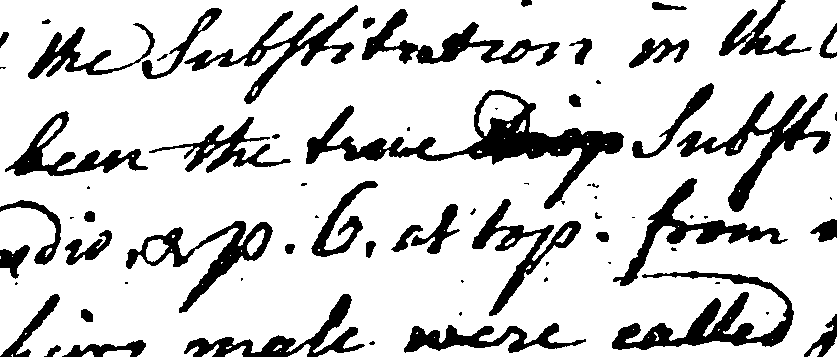 the Substitution in the
been the true Substi
dio, & p. 6, at top. from
heirs male were called